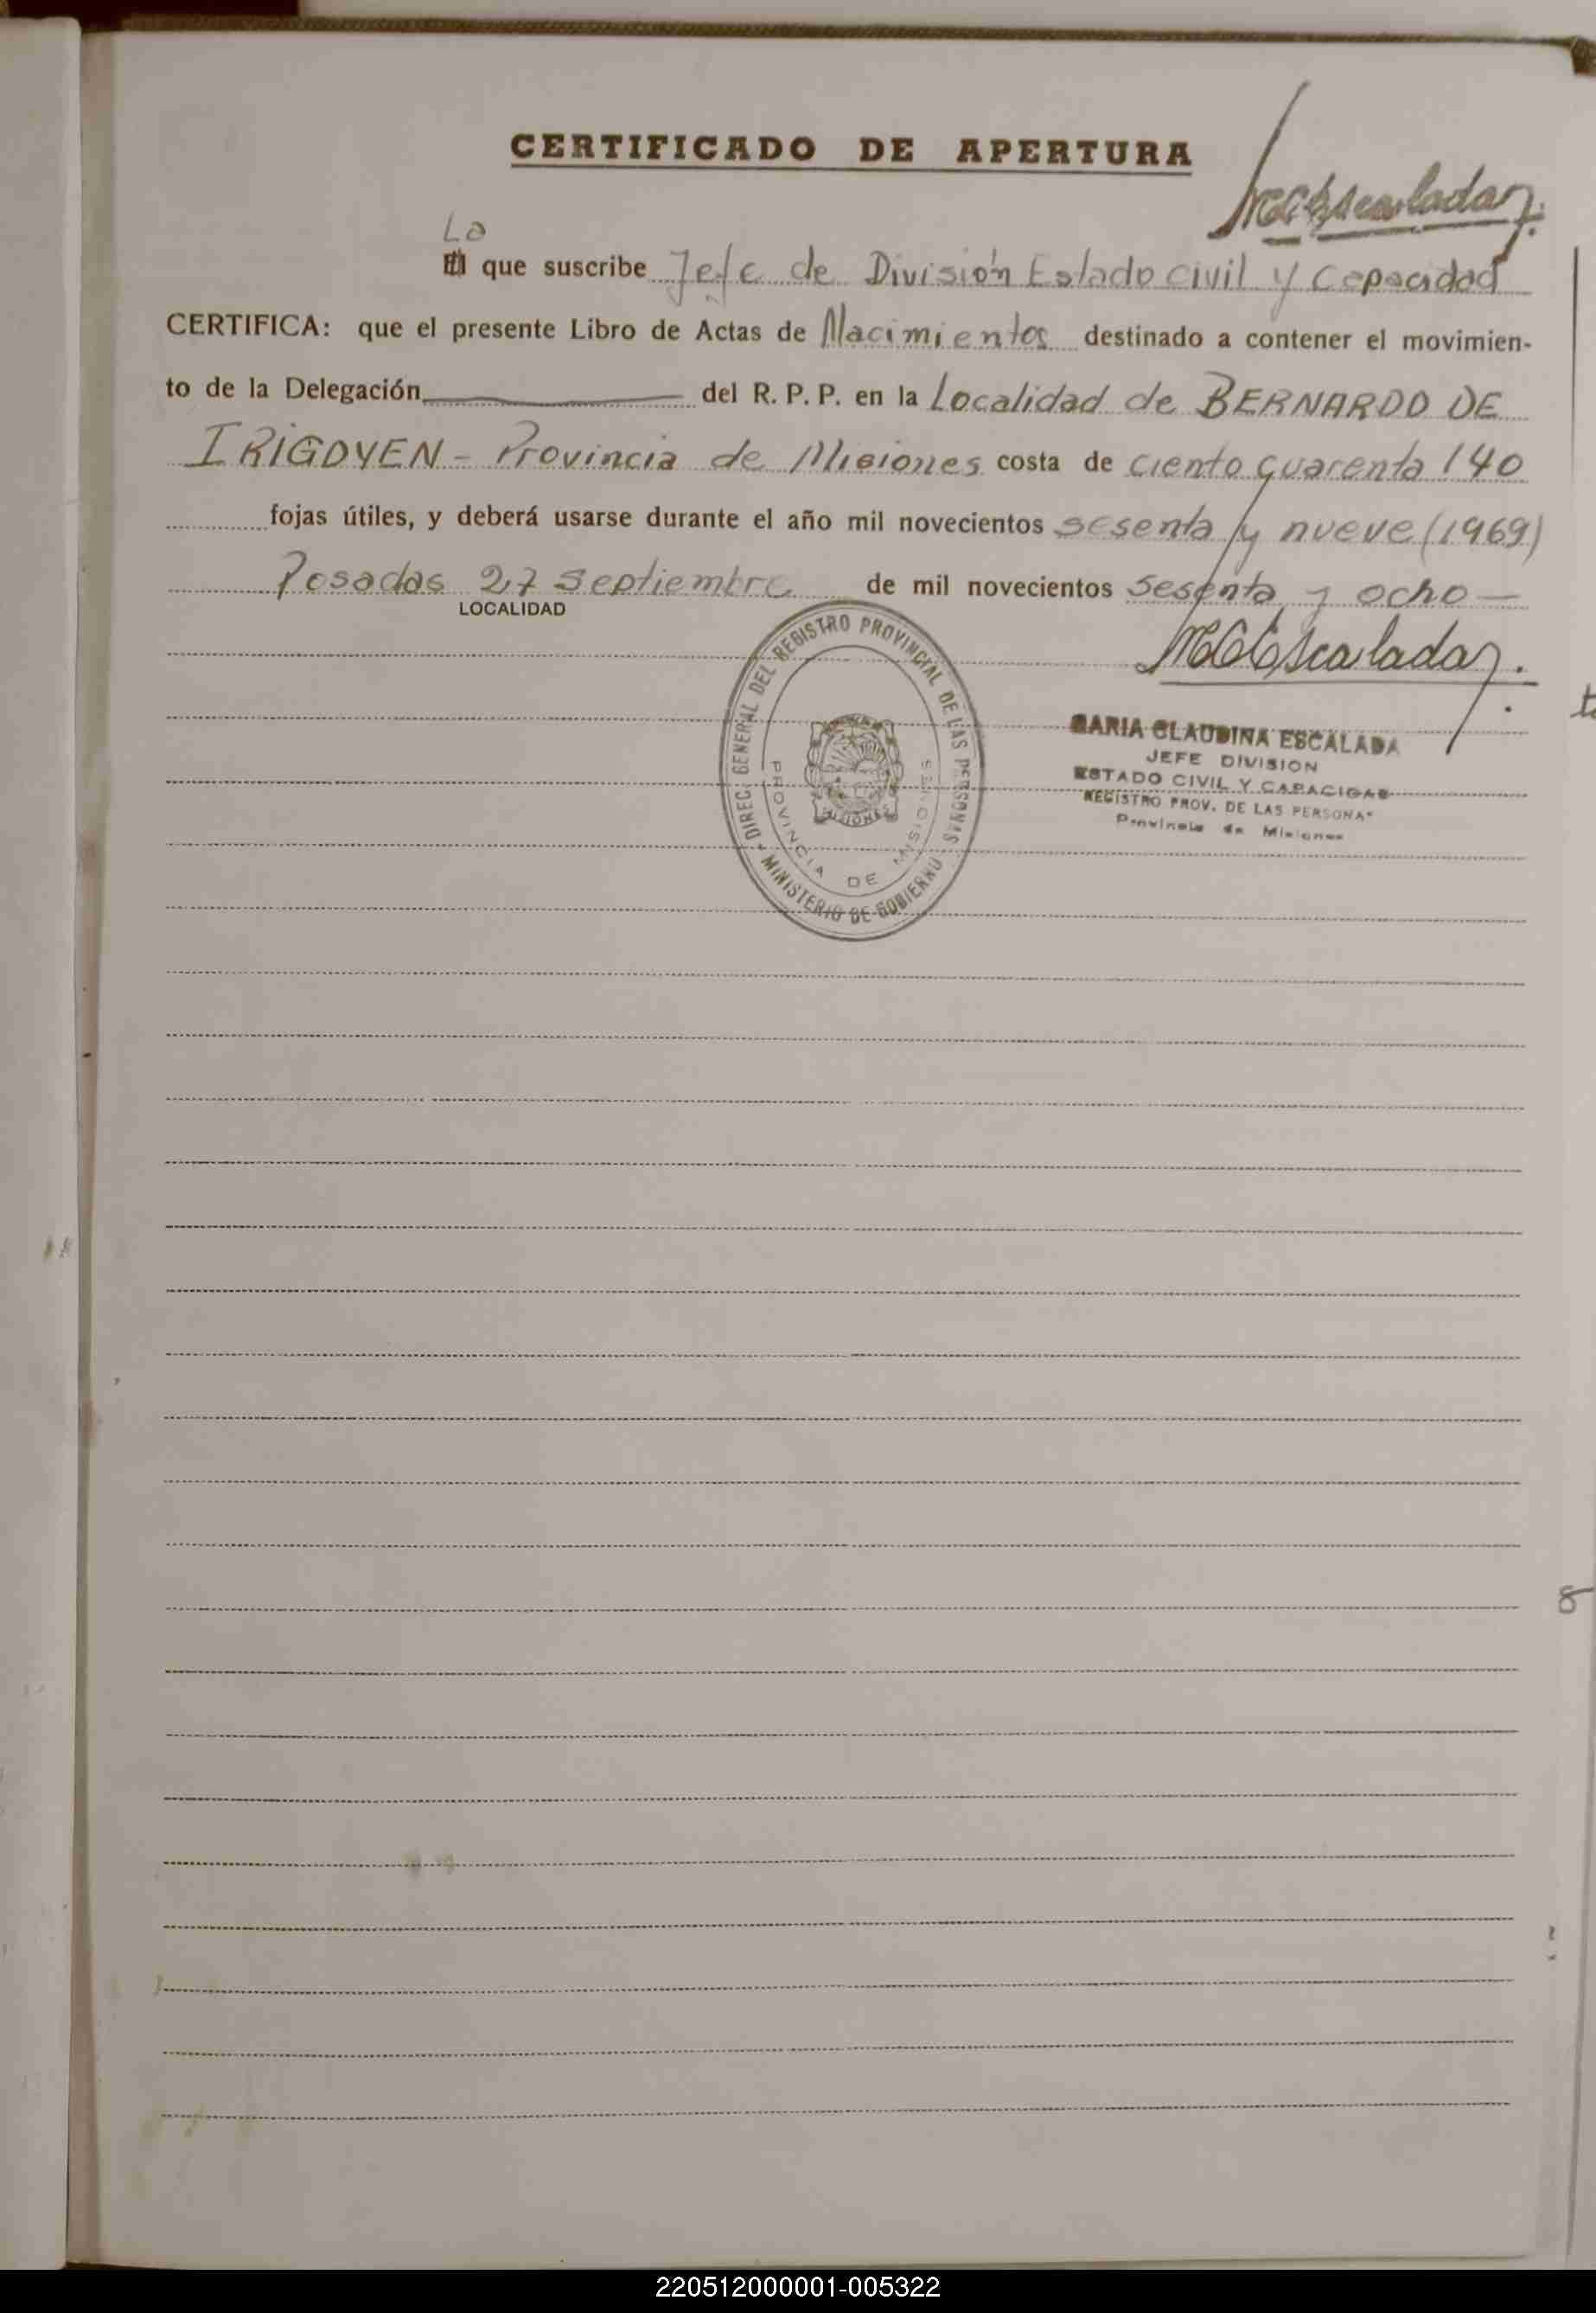 CERTIFICADO DE APERTURA
La
El que suscribe Jefe de División Estado civil y Capacidad
CERTIFICA: que el presente Libro de Actas de Nacimientos destinado a contener el movimien-
to de la Delegación del R. P. P. en la Localidad de BERNARDO DE
IRIGOYEN - Provincia de Misiones costa de ciento cuarenta 140
fojas útiles, y deberá usarse durante el año mil novecientos sesenta y nueve (1969)
Posadas 27 Septiembre de mil novecientos sesenta y ocho —
LOCALIDAD
DIREC. GENERAL DEL REGISTRO PROVINCIAL DE LAS PERSONAS
MINISTERIO DE GOBIERNO
PROVINCIA DE MISIONES
MISIONES
MARIA CLAUDINA ESCALADA
JEFE DIVISION
ESTADO CIVIL Y CAPACIDAD
REGISTRO PROV. DE LAS PERSONAS
Provincia de Misiones
220512000001-005322